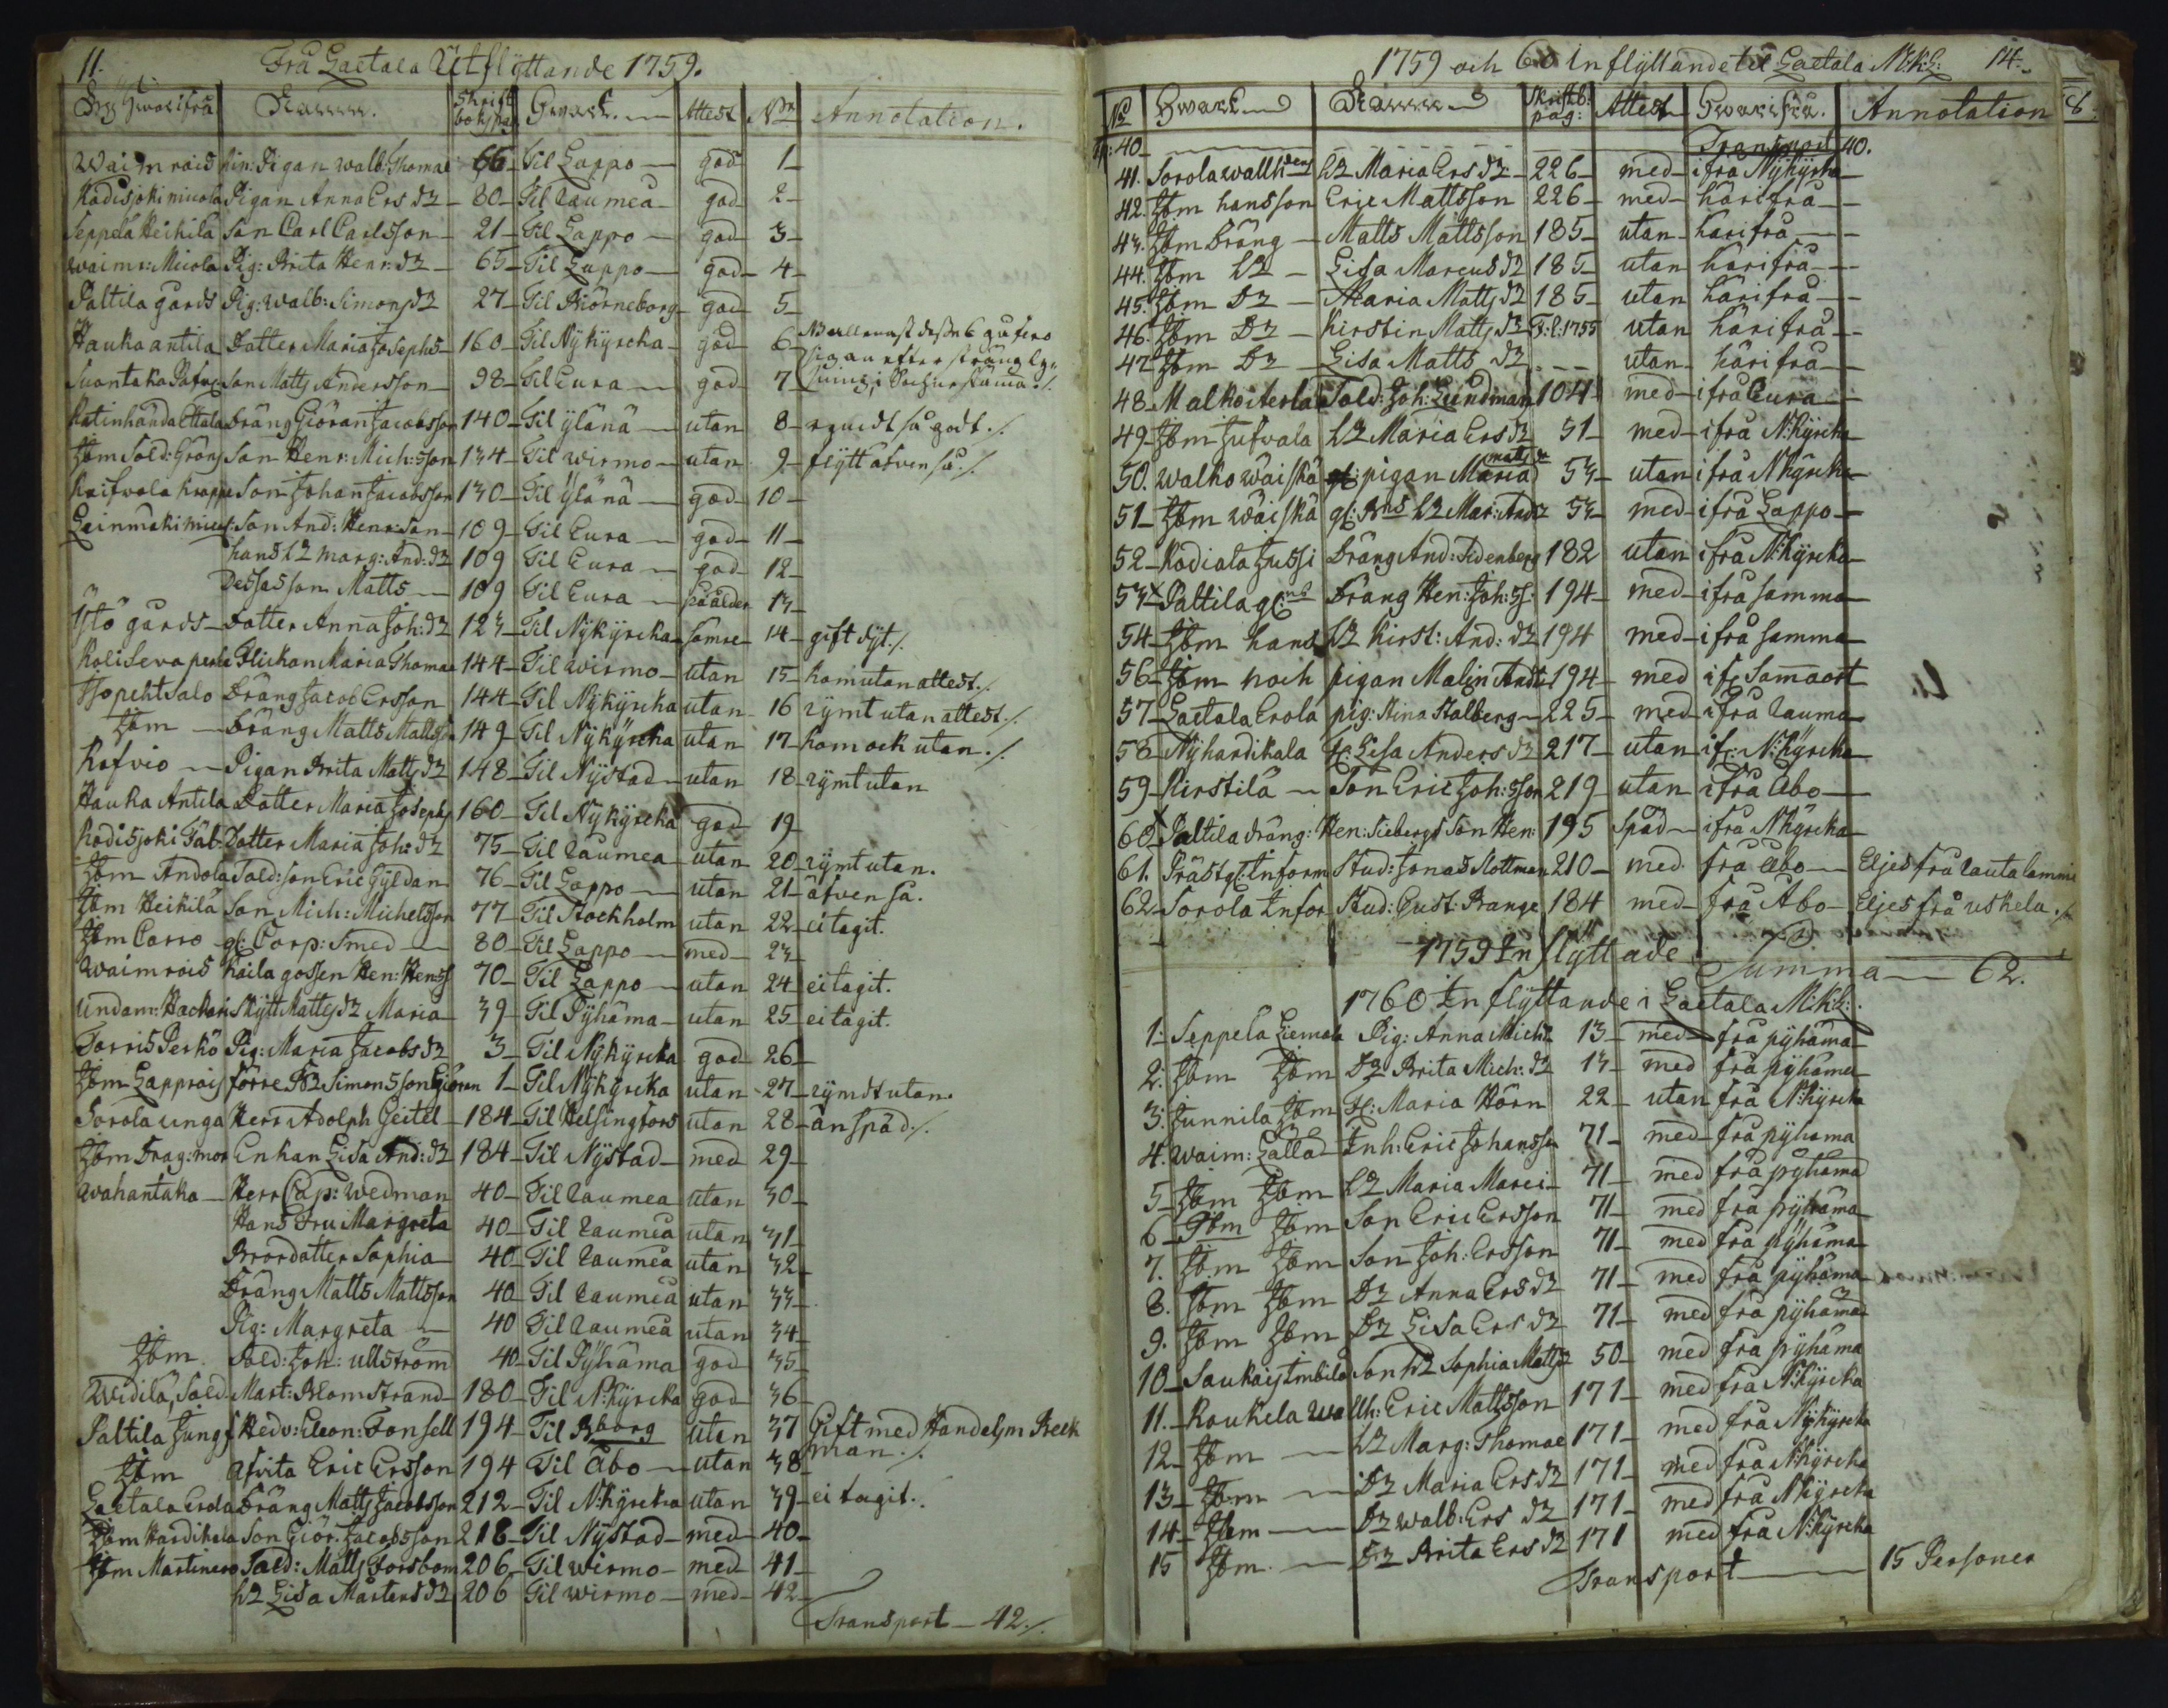 11.
Frå Laetala Utflyttande 1759.
Hwarifrå Namn. Skrift bok pag Hwart. Attest No Annotation.
Waimrais hin: Pigan walb: Thomae 66 Til Lappo god 1
Kadisjoki micola Pigan Anna Ers dr 80 Til Raumea god 2
Seppelä Heikilä Son Carl Carlsson 21 Til Lappo god 3
waim: Micola Pig: Brita Henr: dr 65 Til Lappo god 4
Paltila gårds Pig: walb: Simons dr 27 Til Biörneborg god 5
Hauka antila Dotter Maria Josephs 160 Til Nykyrcka god 6
Suontaka Son Matts Andersson 98 Til Eura god 7
Katinhända Ettala Dräng Giöran Jacobsson 140 Til ylänä utan 8 rymdt så godt ./.
Ibm Sold: Gröns Son Henr: Mich: sson 134 Til wirmo utan 9 flytt äfven så ./.
Kaifwola Krappe Son Johan Jacobsson 130 Til ylänä god 10
Leinmäki Son And: Henr: son 109 Til Eura god 11
hans h: Marg: And: dr 109 Til Eura god 12
Dessas son Matts 109 Til Eura späålder 13
Ylö gårds Dotter Anna Joh: dr 123 Til Nykyrcka samre 14 gift dyt ./.
Koliseva Flickan Maria Thomae 144 Til wirmo utan 15 kom utan attest ./.
Isopehtsalo Dräng Jacob Ersson 144 Til Nykyrcka utan 16 rymt utan attest ./.
Ibm Dräng Matts Mattss 149 Til Nykyrcka utan 17 kom ock utan ./.
Kafvio Pigan Brita Matts dr 148 Til Nystad utan 18 rymt utan
Hauka Antila Dotter Maria Josephs 160 Til Nykyrcka god 19
Kadisjoki Dotter Maria Joh: dr 75 Til Raumea utan 20 rymt utan.
Ibm Andola Sold: son Eric Gyldan 76 Til Lappo utan 21 äfven så.
Ibm Heikilä Son Mich: Michelsson 77 Til Stockholm utan 22 ei tagit.
Ibm Carro gl: Corp: Smed 80 Til Lappo med 23
Waimrais Kaila gossen Hen: Henss 70 Til Lappo utan 24 ei tagit.
Undam: Skytt Matts dr Maria 39 Til Pyhäma utan 25 ei tagit.
Torris Perkö Pig: Maria Jacobs dr 3 Til Nykyrcka god 26
Ibm Lapprais förre Simon sson Giöran 1 Til Nykyrcka utan 27 rymdt utan.
Sorola unga Herr Adolph Geitel 184 Til Helsingfors utan 28 än späd ./.
Ibm Enkan Lisa And: dr 184 Til Nystad med 29
Wahantaka Herr Cap: Wedman 40 Til Raumea utan 30
Hans Fru Margreta 40 Til Raumea utan 31
Brordotter Sophia 40 Til Raumea utan 32
Dräng Matts Mattsson 40 Til Raumea utan 33
Pig: Margreta 40 Til Raumea utan 34
Ibm Sold: Joh: Ullström 40 Til Pyhäma god 35
Widilä, Sold Mart: Blomstrand 180 Til N:kyrcka god 36
Paltila Jungf Hedv: Eleon: Fonsell 194 Til Bborg utan 37 Gift med Handelsm Beckman ./.
Ibm Afvita Eric Ersson 194 Til Åbo utan 38
Laetala Erola Dräng Matts Jacobsson 212 Til N:kyrcka utan 39 ei tagit ./.
Ibm Hardikala Son Giör: Jacobsson 218 Til Nystad med 40
Ibm Martinero Sold: Matts Forsbom 206 Til wirmo med 41
Lisa Mårtens dr 206 Til wirmo med 42
Transport 42 ./.
1759 och 60 Inflyttande til Laetala M:K:L: 14.
No Hwart Namn Skriftb: pag: Attest Hwarifrå. Annotation
40 Transport 40.
41. Sorola Maria Ers dr 226 med ifrå Nykyrka
42. Ibm hans son Eric Mattsson 226 med härifrå
43. Ibm Dräng Matts Mattsson 185 utan härifrå
44. Ibm Lisa Marcus dr 185 utan härifrå
45. Ibm Dr Maria Matts dr 185 utan härifrå
46. Ibm Dr Kirstin Matts dr F:l: 1755 utan härifrå
47 Ibm Dr Lisa Matts dr utan härifrå
48. Malko iterla Sold: Joh: Lundman 104 med ifrå Eura
49 Ibm Jufvala Maria Ers dr 51 med ifrå N:kyrcka
50. Walko wäiskä pigan Maria matts dr 53 utan ifrå N:kyrcka
51 Ibm wäiskä Mar: And: dr 53 med ifrå Lappo
52 Kodiala Jussi Dräng And: Sedenberg 182 utan ifrå N:kyrcka
53 Paltila Dräng Hen: Joh: ss: 194 med ifrå samma
54 Ibm hans Kirst: And: dr 194 med ifrå samma
56 Ibm noch pigan Malin 194 med if: Samaort
57 Laetala Erola pig: Stina Stalberg 225 med ifrå Rauma
58 Nyhardikala Lisa Anders dr 217 utan if: N:kyrcka
59 Kirstilä Son Eric Joh: sson 219 utan ifrå Åbo
60 Paltila dräng: Hen: Siebergs Son Hen: 195 Späd ifrå N:kyrcka
61. Prästg: Inform Stud: Jonas Slottman 210 med frå Åbo Eljes frå Rautalammi
62 Sorola Infor Stud: Gust: Prange 184 med frå Åbo Eljes frå uskela ./.
1759 Inflyttade Summa 62.
1760 Inflyttande i Laetala M:K:L:
1. Seppela Liemola Pig: Anna Mich: 13 med frå pyhäma
2. Ibm Ibm Dr Brita Mich: dr 13 med frå pyhäma
3. Junnila Ibm Maria Hörn 22 utan frå N:kyrcka
4. Waim: Lalla Inh: Eric Johansson 71 med frå pyhäma
5 Ibm Ibm Maria Marci 71 med frå pyhäma
6 Ibm Ibm Son Eric Ersson 71 med frå pyhäma
7. Ibm Ibm Son Joh: Ersson 71 med frå pyhäma
8. Ibm Ibm Dr Anna Ers dr 71 med frå pyhäma
9. Ibm Ibm Dr Lisa Ers dr 71 med frå pyhäma
10 Saukais Son Sophia Matts dr 50 med frå pyhäma
11. Koukela Wallh: Eric Mattsson 171 med frå N:kyrcka
12 Ibm Marg: Thomae 171 med frå Nykyrcka
13 Ibm Dr Maria Ers dr 171 med frå N:kyrcka
14 Ibm Dr walb: Ers dr 171 med frå N:kyrcka
15 Ibm Dr Brita Ers dr 171 med frå N:kyrcka
Transport 15 Personer